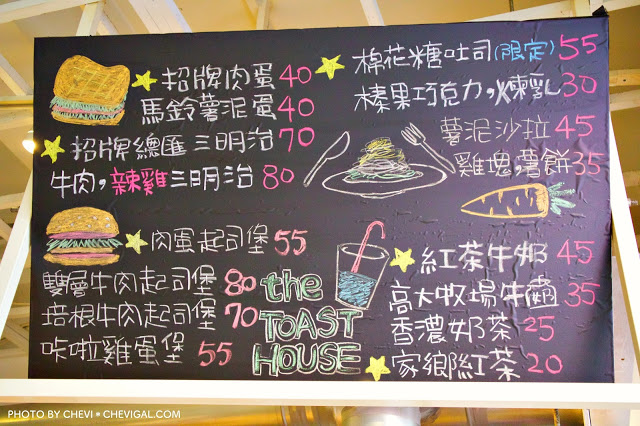 招牌肉蛋 40
馬鈴薯泥蛋 40
招牌總匯三明治 70
牛肉,辣雞三明治 80
肉蛋起司堡 55
雙層牛肉起司堡 80
培根牛肉起司堡 70
咔啦雞蛋堡 55
棉花糖吐司(限定) 55
榛果巧克力,煉乳 30
薯泥沙拉 45
雞塊,薯餅 35
the
TOAST
HOUSE
紅茶牛奶 45
高大牧場牛奶 35
香濃奶茶 25
家鄉紅茶 20
PHOTO BY CHEVI * CHEVIGAL.COM